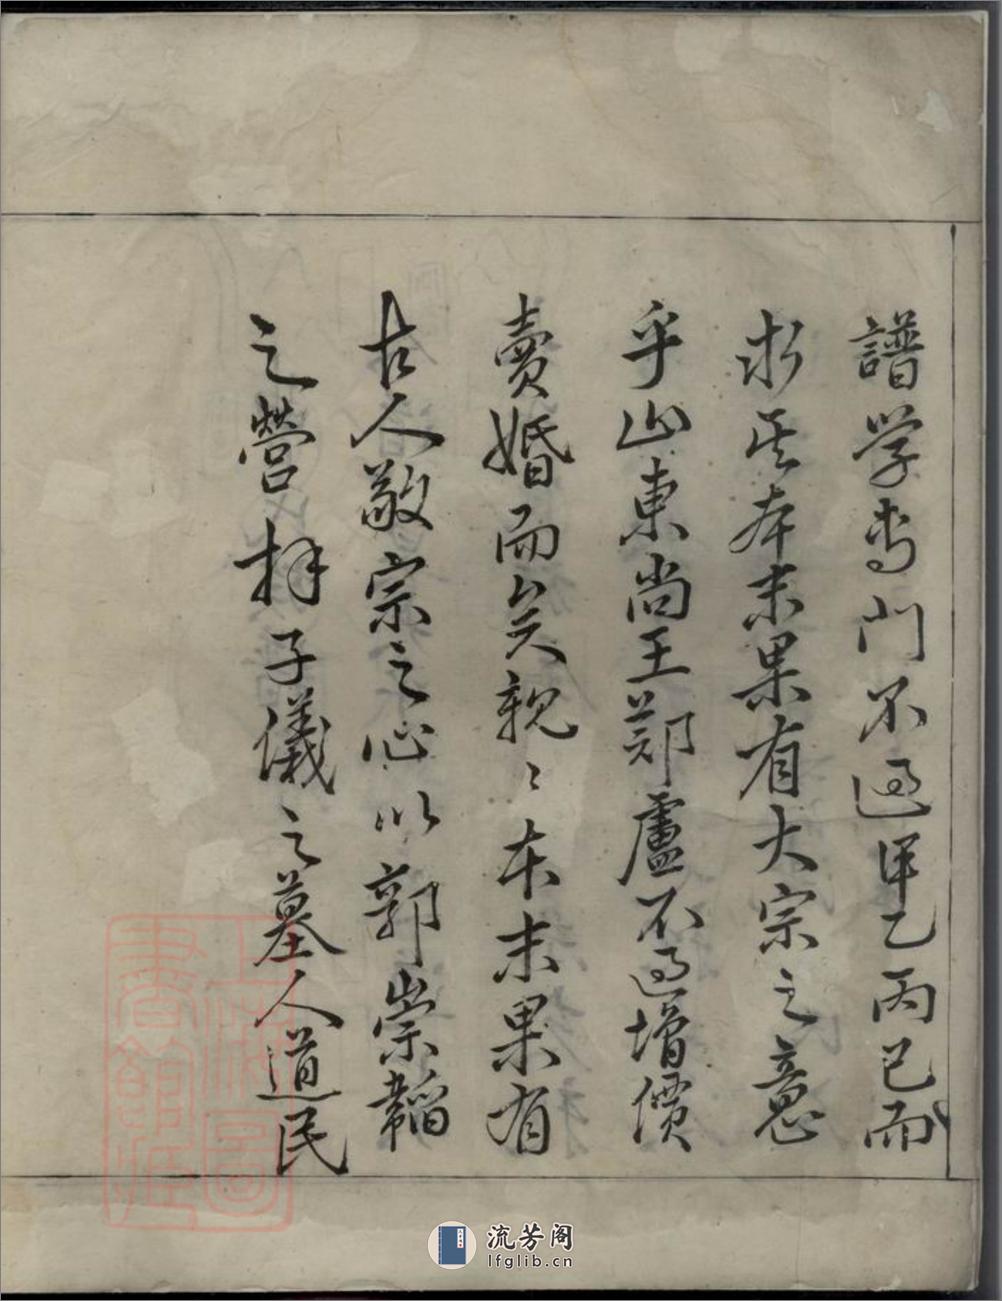 譜学専门不過甲乙丙已而
求其本末果有大宗之意
乎山東尚王鄭盧不過增價
賣婚而矣親〻本末果有
古人敬宗之心以郭崇韜
之營拜子儀之墓人道民
上海圖
書館藏
流芳阁
lfglib.cn